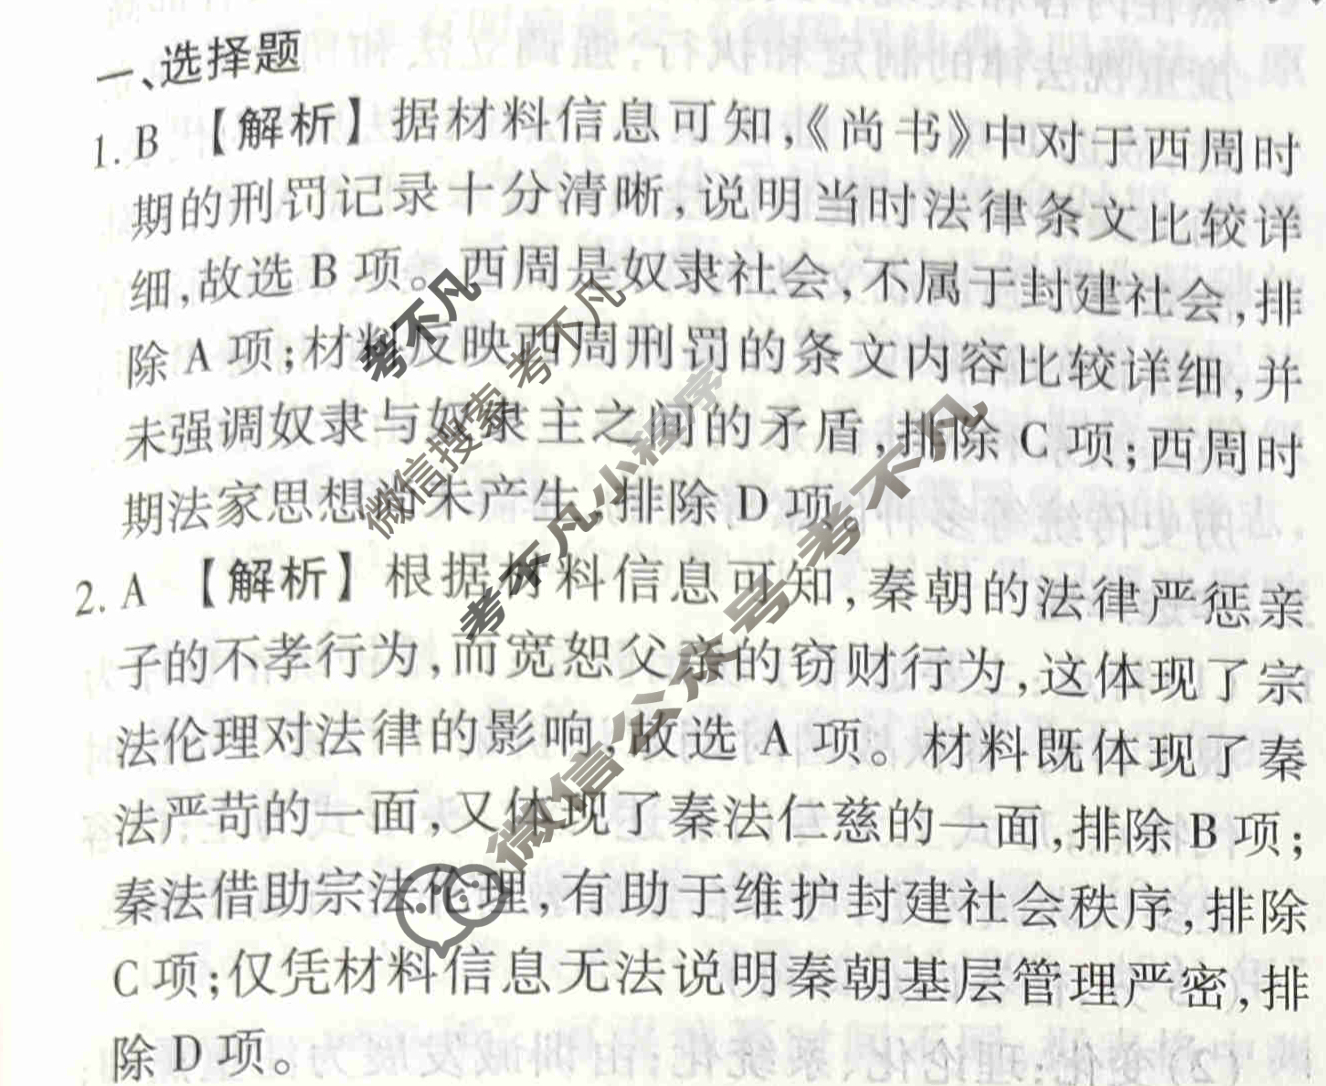 一、选择题
1. B 【解析】据材料信息可知,《尚书》中对于西周时
期的刑罚记录十分清晰,说明当时法律条文比较详
细,故选 B 项。西周是奴隶社会,不属于封建社会,排
除 A 项;材料反映西周刑罚的条文内容比较详细,并
未强调奴隶与奴隶主之间的矛盾,排除 C 项;西周时
期法家思想尚未产生,排除 D 项。
2. A 【解析】根据材料信息可知,秦朝的法律严惩亲
子的不孝行为,而宽恕父亲的窃财行为,这体现了宗
法伦理对法律的影响,故选 A 项。材料既体现了秦
法严苛的一面,又体现了秦法仁慈的一面,排除 B 项;
秦法借助宗法伦理,有助于维护封建社会秩序,排除
C 项;仅凭材料信息无法说明秦朝基层管理严密,排
除 D 项。
考不凡
微信搜索 考不凡
考不凡小程序
微信公众号 考不凡